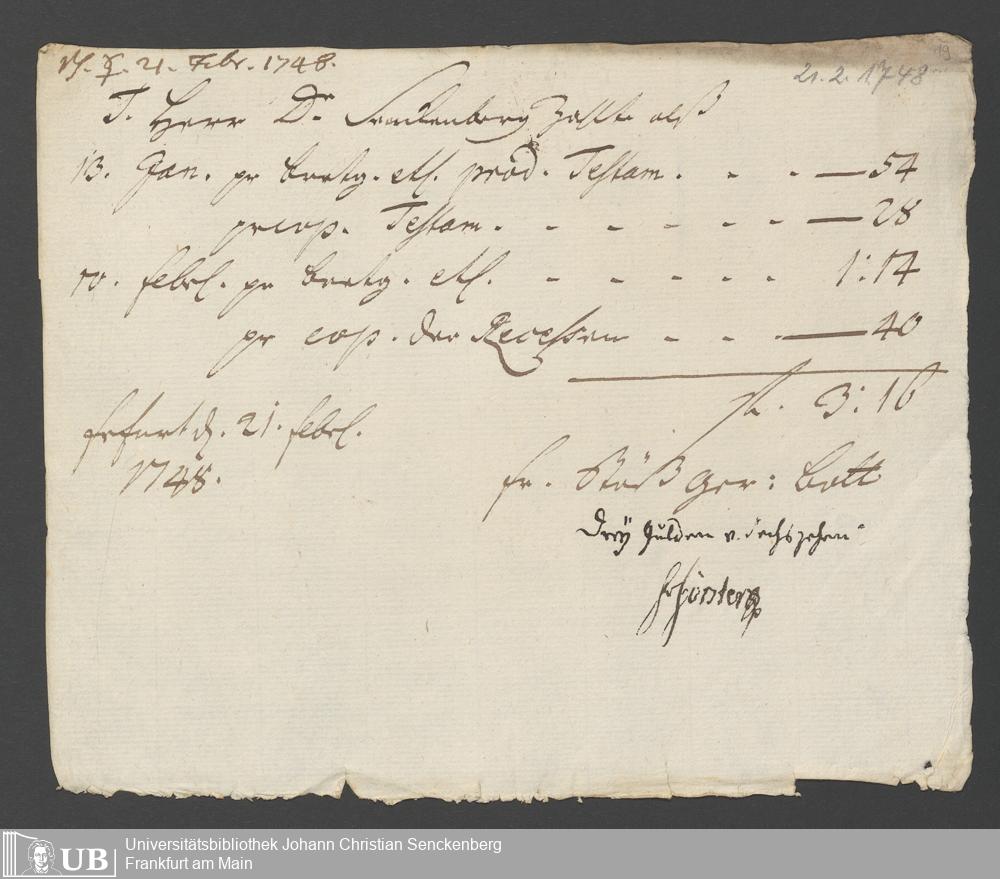 21. Febr. 1748.
21. 2. 1748
19
T. Herr Dr Senckenberg zahlt als
13. Jan. pr prod. Testam. . - . — 54
pr cop. Testam. - - - - - - — 28
10. febr. pr - - - - - 1:14
pr cop. der Recessen - - - — 40
fl. 3:16
d. 21. febr.
1748.
fr. Stöß ger: bott
Drey Gulden v. sechszehen
Universitätsbibliothek Johann Christian Senckenberg
Frankfurt am Main
UB